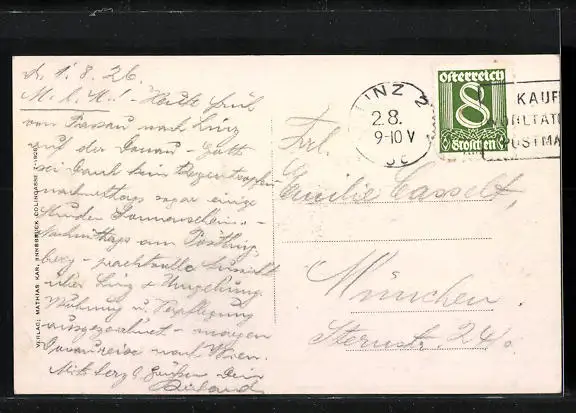 d. 1.8.26.
M. l. M.! - Heute früh
von Passau nach Linz
auf der Donau - Gott
sei Dank kein Regentropfen
nachmittags sogar einige
Stunden Sonnenschein. -
Nachmittags am Pöstling-
berg - prachtvolle Aussicht
über Linz + Umgebung.
Wohnung u. Verpflegung
ausgezeichnet - morgen
Donaureise nach Wien.
Mit herzl. Grüßen Dein
VERLAG: MATHIAS KAR, INNSBRUCK COLINGASSE 7-1926
LINZ 2
2.8.
9-10 V
Österreich
8
Groschen
KAUF
WOHLTÄT
POSTMA
Frl.
Emilie Casselt,
München.
Sternstr. 24/0